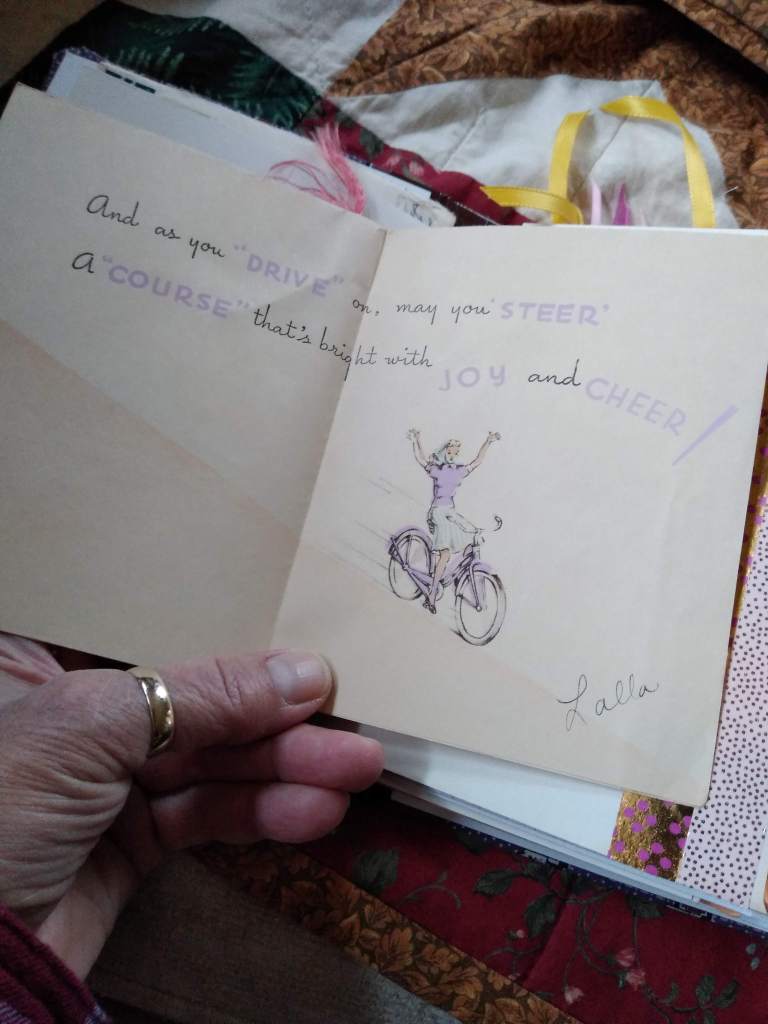 And as you "DRIVE" on, may you "STEER"
A "COURSE" that's bright with JOY and CHEER!
Lalla